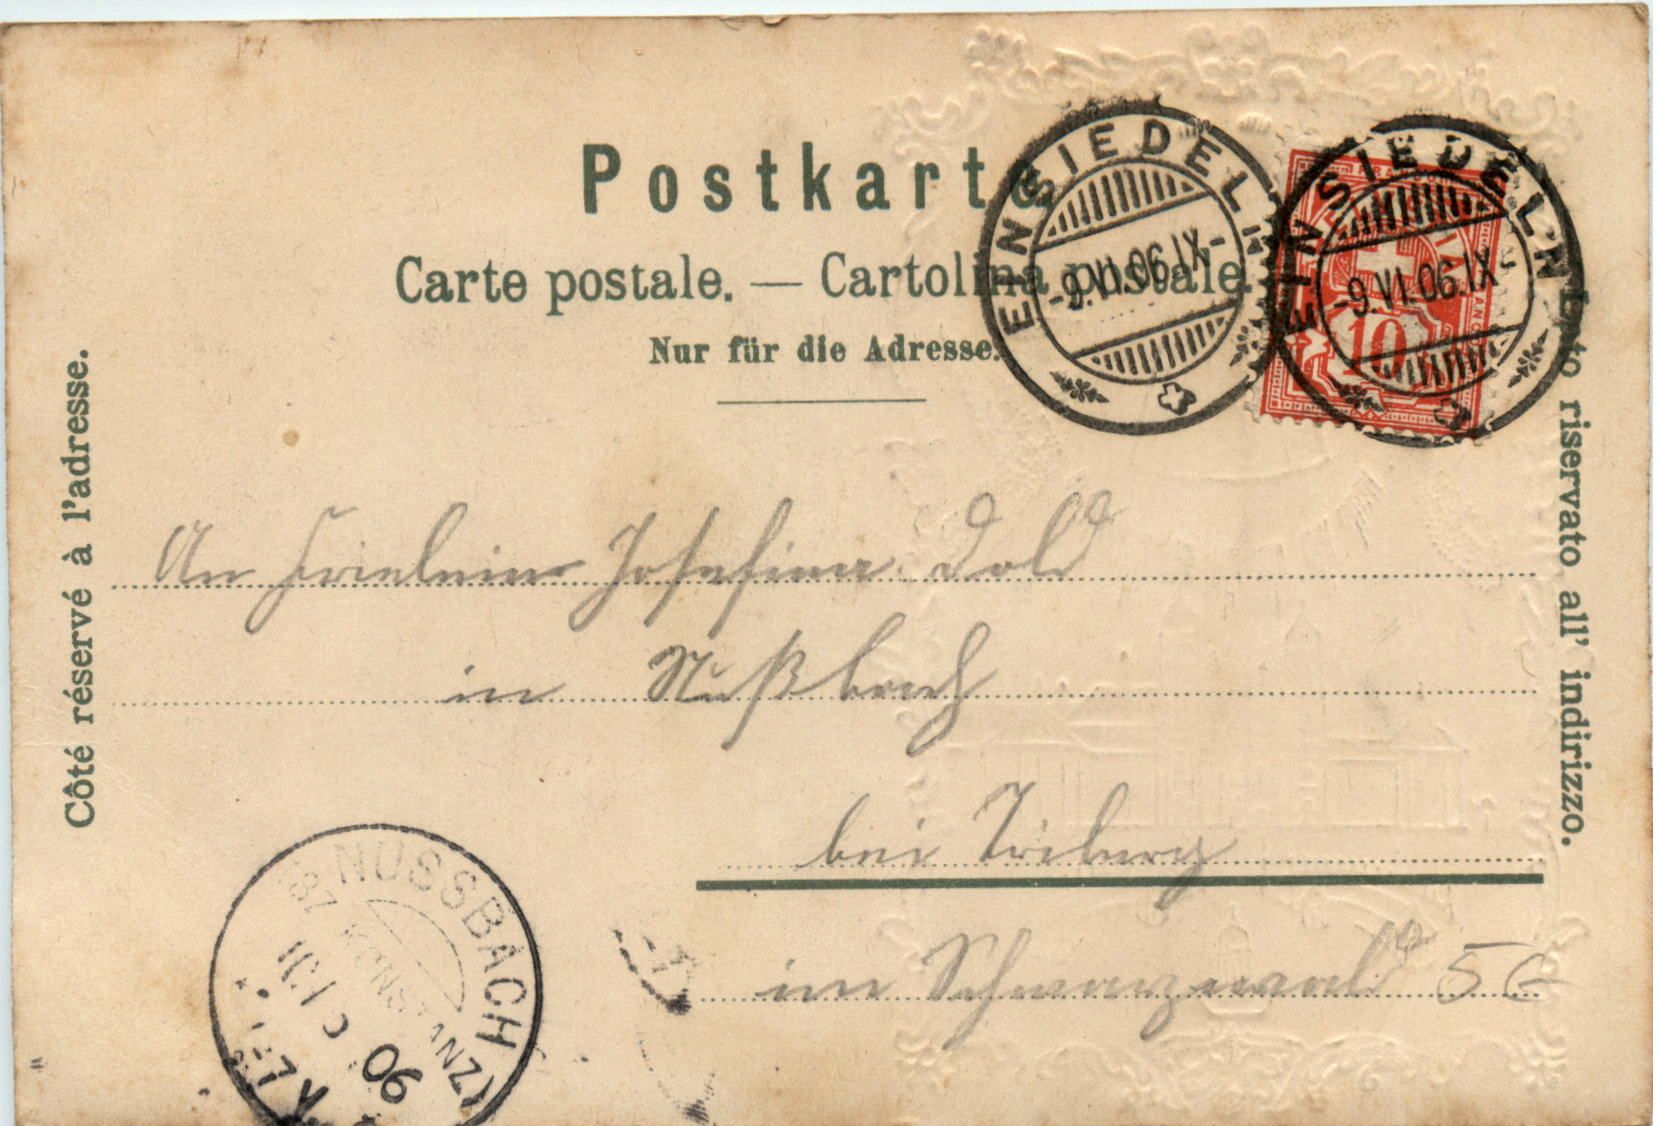 Postkarte
Carte postale. — Cartolina postale.
Nur für die Adresse.
Côté réservé à l'adresse.
riservato all' indirizzo.
EINSIEDELN
-9.VI.06.IX-
EINSIEDELN
-9.VI.06.IX-
10
An Fräulein Josefina Dold
in Nußbach
bei Triberg
im Schwarzwald
NUSSBACH
KONSTANZ)
06